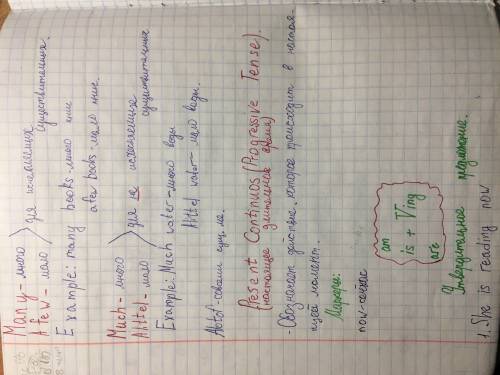 Many - много
A few - мало
для исчисляемых
существительных
Example: many books - много книг
a few books - мало книг.
Much - много
A littel - мало
для не исчисляемых
существительных
Example: Much water - много воды
A littel water - мало воды.
A lot of - со всеми сущ. ми.
Present Continuos (Progressive Tense).
(настоящее длительное время)
- Обозначает действие, которое происходит в настоя-
щей момент.
Маркеры:
now - сейчас
am
is + Ving
are
Утвердительное предложение.
1. She is reading now